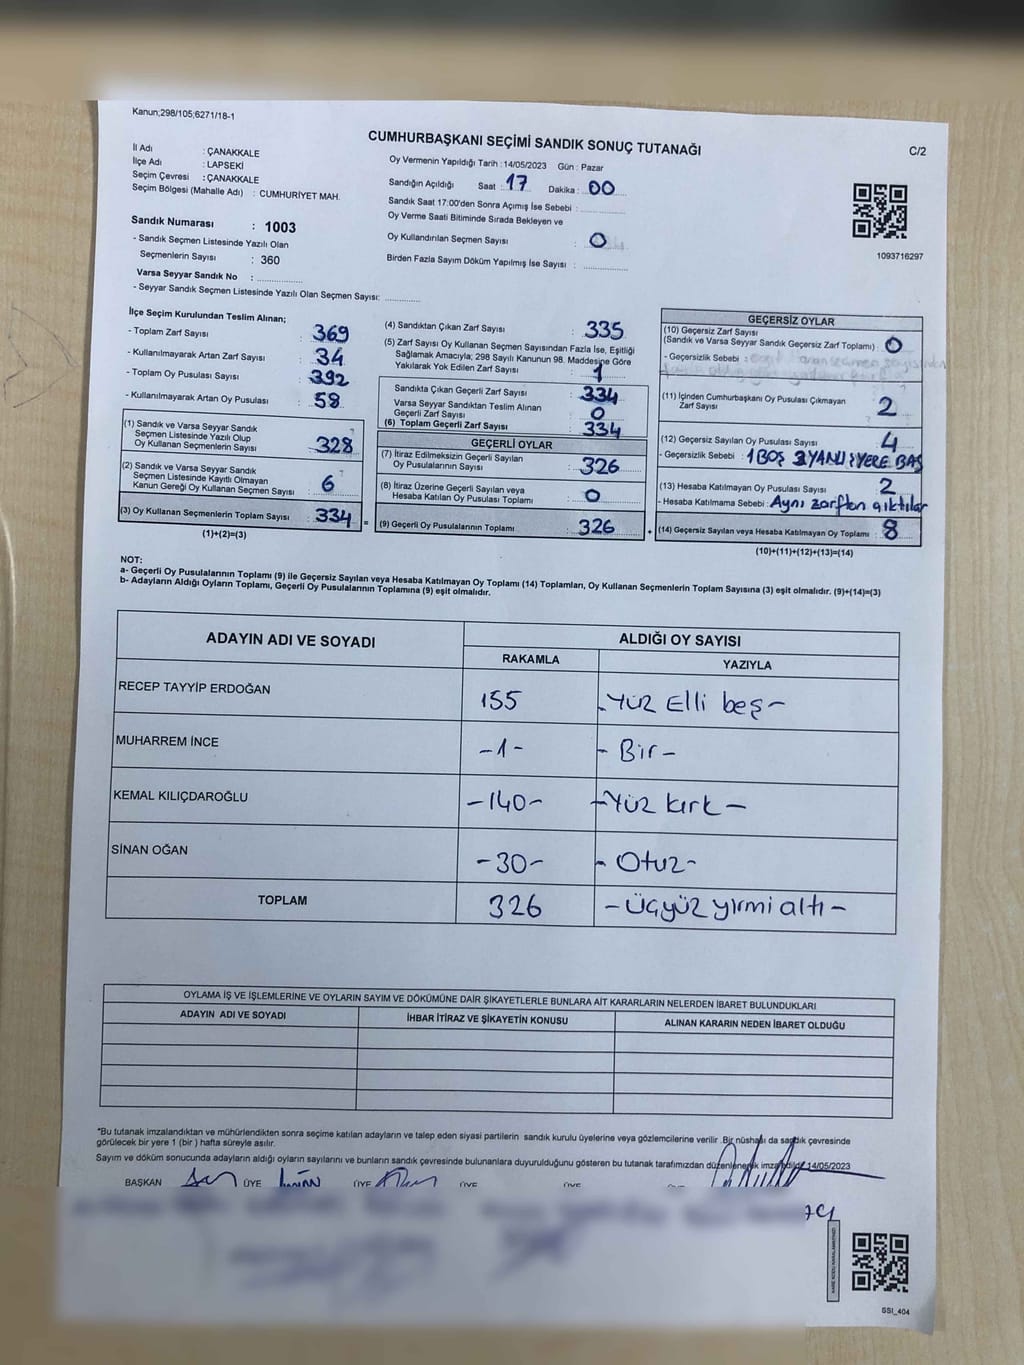 Kanun;298/105;6271/18-1
CUMHURBAŞKANI SEÇİMİ SANDIK SONUÇ TUTANAĞI
C/2
İl Adı : ÇANAKKALE
İlçe Adı : LAPSEKİ
Seçim Çevresi : ÇANAKKALE
Seçim Bölgesi (Mahalle Adı) : CUMHURİYET MAH.
Sandık Numarası : 1003
- Sandık Seçmen Listesinde Yazılı Olan
Seçmenlerin Sayısı : 360
Varsa Seyyar Sandık No :
- Seyyar Sandık Seçmen Listesinde Yazılı Olan Seçmen Sayısı:
Oy Vermenin Yapıldığı Tarih : 14/05/2023 Gün : Pazar
Sandığın Açıldığı Saat : 17 Dakika : 00
Sandık Saat 17:00'den Sonra Açımış İse Sebebi :
Oy Verme Saati Bitiminde Sırada Bekleyen ve
Oy Kullandırılan Seçmen Sayısı : 0
Birden Fazla Sayım Döküm Yapılmış İse Sayısı :
1093716297
İlçe Seçim Kurulundan Teslim Alınan;
- Toplam Zarf Sayısı : 369
- Kullanılmayarak Artan Zarf Sayısı : 34
- Toplam Oy Pusulası Sayısı : 392
- Kullanılmayarak Artan Oy Pusulası : 58
(1) Sandık ve Varsa Seyyar Sandık
Seçmen Listesinde Yazılı Olup
Oy Kullanan Seçmenlerin Sayısı : 328
(2) Sandık ve Varsa Seyyar Sandık
Seçmen Listesinde Kayıtlı Olmayan
Kanun Gereği Oy Kullanan Seçmen Sayısı : 6
(3) Oy Kullanan Seçmenlerin Toplam Sayısı : 334 =
(1)+(2)=(3)
(4) Sandıktan Çıkan Zarf Sayısı : 335
(5) Zarf Sayısı Oy Kullanan Seçmen Sayısından Fazla İse, Eşitliği
Sağlamak Amacıyla; 298 Sayılı Kanunun 98. Maddesine Göre
Yakılarak Yok Edilen Zarf Sayısı : 1
Sandıkta Çıkan Geçerli Zarf Sayısı : 334
Varsa Seyyar Sandıktan Teslim Alınan
Geçerli Zarf Sayısı : 0
(6) Toplam Geçerli Zarf Sayısı : 334
GEÇERLİ OYLAR
(7) İtiraz Edilmeksizin Geçerli Sayılan
Oy Pusulalarının Sayısı : 326
(8) İtiraz Üzerine Geçerli Sayılan veya
Hesaba Katılan Oy Pusulası Toplamı : 0
(9) Geçerli Oy Pusulalarının Toplamı : 326 +
GEÇERSİZ OYLAR
(10) Geçersiz Zarf Sayısı
(Sandık ve Varsa Seyyar Sandık Geçersiz Zarf Toplamı) : 0
- Geçersizlik Sebebi :
(11) İçinden Cumhurbaşkanı Oy Pusulası Çıkmayan
Zarf Sayısı : 2
(12) Geçersiz Sayılan Oy Pusulası Sayısı : 4
- Geçersizlik Sebebi : 1 BOŞ YERE BAS
(13) Hesaba Katılmayan Oy Pusulası Sayısı : 2
- Hesaba Katılmama Sebebi : Aynı zarftan çıktılar
(14) Geçersiz Sayılan veya Hesaba Katılmayan Oy Toplamı : 8
(10)+(11)+(12)+(13)=(14)
NOT:
a- Geçerli Oy Pusulalarının Toplamı (9) ile Geçersiz Sayılan veya Hesaba Katılmayan Oy Toplamı (14) Toplamları, Oy Kullanan Seçmenlerin Toplam Sayısına (3) eşit olmalıdır. (9)+(14)=(3)
b- Adayların Aldığı Oyların Toplamı, Geçerli Oy Pusulalarının Toplamına (9) eşit olmalıdır.
ADAYIN ADI VE SOYADI ALDIĞI OY SAYISI
RAKAMLA YAZIYLA
RECEP TAYYİP ERDOĞAN 155 -Yüz Elli beş-
MUHARREM İNCE -1- -Bir-
KEMAL KILIÇDAROĞLU -140- -Yüz kırk-
SİNAN OĞAN -30- -Otuz-
TOPLAM 326 -Üçyüz yirmi altı-
OYLAMA İŞ VE İŞLEMLERİNE VE OYLARIN SAYIM VE DÖKÜMÜNE DAİR ŞİKAYETLERLE BUNLARA AİT KARARLARIN NELERDEN İBARET BULUNDUKLARI
ADAYIN ADI VE SOYADI İHBAR İTİRAZ VE ŞİKAYETİN KONUSU ALINAN KARARIN NEDEN İBARET OLDUĞU
*Bu tutanak imzalandıktan ve mühürlendikten sonra seçime katılan adayların ve talep eden siyasi partilerin sandık kurulu üyelerine veya gözlemcilerine verilir .Bir nüshası da sandık çevresinde
görülecek bir yere 1 (bir ) hafta süreyle asılır.
Sayım ve döküm sonucunda adayların aldığı oyların sayılarını ve bunların sandık çevresinde bulunanlara duyurulduğunu gösteren bu tutanak tarafımızdan düzenlenerek imza edildi. 14/05/2023
BAŞKAN ÜYE ÜYE ÜYE ÜYE
SSI_404